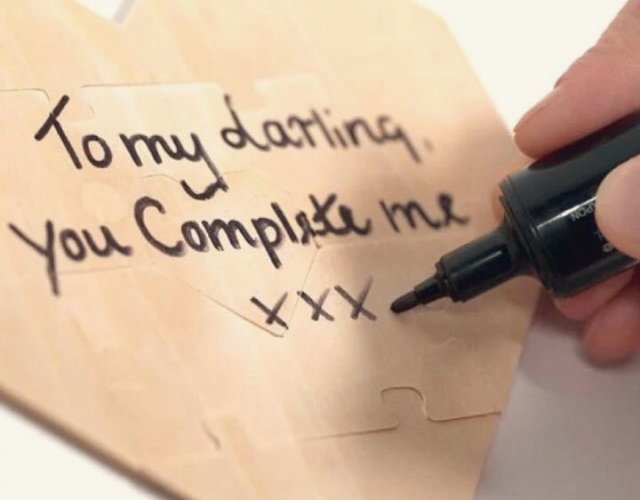 To my darling,
you Complete me
xxx